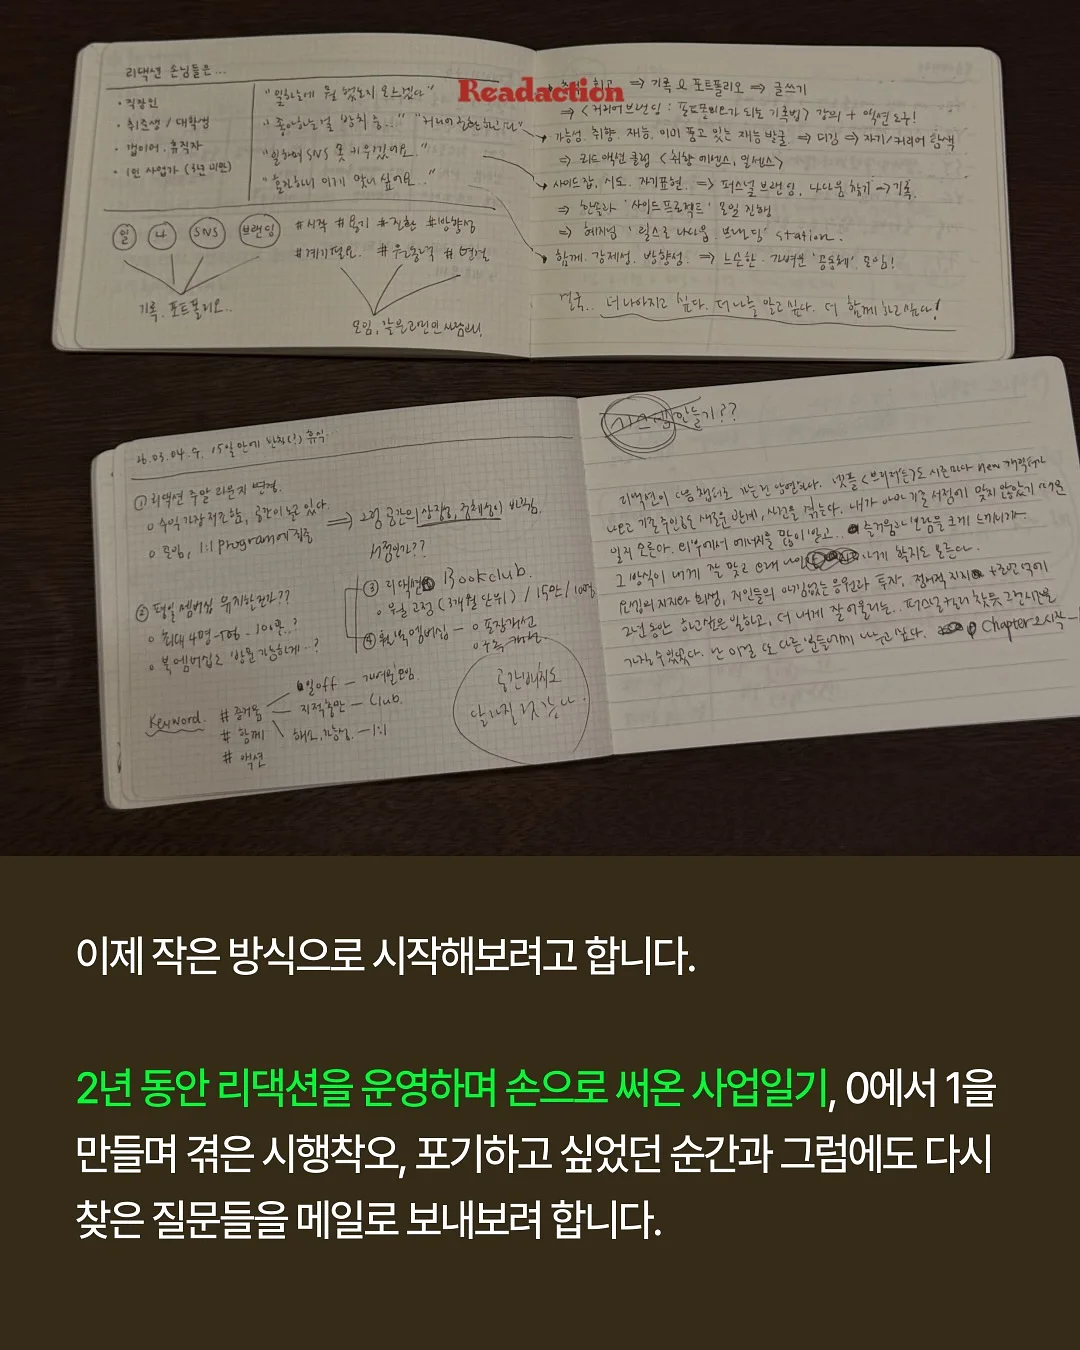 Readaction
리댁션 손님들은...
· 직장인
· 취준생 / 대학생
· 갭이어. 휴직자
· 1인 사업가 (3년 미만)
"일하는데 뭘 했는지 모르겠다"
"일하며 SNS 못 키우겠어요.."
"혼자하니 이게 맞나 싶어요.."
일 나 SNS 브랜딩
#시작 #용기 #전환 #방향성
#계기필요. #원동력 #연결
기록. 포트폴리오..
⇒ 기록 & 포트폴리오 ⇒ 글쓰기
⇒ <커리어브랜딩 : 포트폴리오가 되는 기록법> 강의 + 액션 도구!
가능성. 취향. 재능. 이미 품고 있는 재능 발굴. ⇒ 디깅 ⇒ 자기/커리어 탐색
⇒ 리드액션 클럽 <취향 에센스, 일센스>
사이드잡, 시도. 자기표현. ⇒ 퍼스널 브랜딩, 나다움 찾기 → 기록.
⇒ '사이드프로젝트' 모임 진행
⇒ '릴스로 나다움. 브랜딩' station.
함께. 강제성. 방향성. ⇒ 느슨한. 가벼운 '공동체' 모임!
결국.. 더 나아지고 싶다. 더 나를 알고 싶다. 더 함께 하고 싶다!
26.03.04.수. 15일만에 휴식..
① 리댁션 주말 라운지 변경.
o 수익 가장 저조함, 공간이 놀고 있다.
o 모임, 1:1 program에 집중
⇒ 그럼 공간의 상징성, 정체성이 비즈니스
서점인가??
② 평일 멤버십 유지한건가??
o 최대 4명-5명. 100만..?
o 북멤버십으로 방문 가능하게..?
③ 리댁션 Bookclub.
o 요일 고정 (3개월 단위) / 15만 / 100명
④ 멤버십 – o 포장개선
Keyword. # 즐거움
# 함께
# 액션
일off –
지적충만 – Club.
– 1:1
공간배치도
달라질것 같다.
시스템 만들기??
리댁션이 다음 챕터로 가는건 당연하다. 넷플 <브리저튼>도 시즌마다 new 캐릭터가
나오고 기존주인공도 새로운 반게, 사건을 겪는다. 내가 아마 기존 서점에 맞지 않았기 때문
일지 모른다. 외부에서 에너지를 많이 받고.. 즐거움과 보람을 크게 느끼니까.
그 방식이 내게 잘 맞고 오래 할지도 모른다.
지인들의 아낌없는 응원과 투자, 정서적 지지 + 조언 덕에
2년 동안 하고싶은 일하고, 더 내게 잘 어울리는.. 퍼스널컬러 찾듯 그런시간을
가질 수 있었다. 난 이걸 또 다른 분들에게 나누고 싶다. Chapter 2 시작
이제 작은 방식으로 시작해보려고 합니다.
2년 동안 리댁션을 운영하며 손으로 써온 사업일기, 0에서 1을
만들며 겪은 시행착오, 포기하고 싶었던 순간과 그럼에도 다시
찾은 질문들을 메일로 보내보려 합니다.